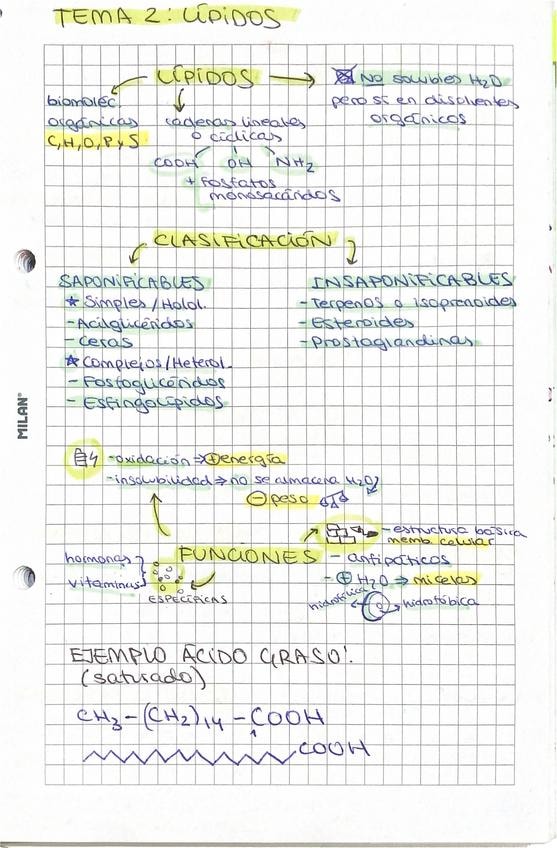 TEMA 2: LÍPIDOS
LÍPIDOS
NO solubles H2O
pero sí en disolventes
orgánicos
biomoléc.
orgánicas
C, H, O, P y S
cadenas lineales
o cíclicas
COOH OH NH2
+ fosfatos
monosacáridos
CLASIFICACIÓN
SAPONIFICABLES
★ Simples / Holol.
- Acilglicéridos
- Ceras
★ Complejos / Heterol.
- Fosfoglicéridos
- Esfingolípidos
INSAPONIFICABLES
- Terpenos o isoprenoides
- Esteroides
- Prostaglandinas
MILAN®
- oxidación ⇒ ⊕ energía
- insolubilidad ⇒ no se almacena H2O
⊖ peso
- estructura básica
memb. celular
FUNCIONES
- anfipáticos
- ⊕ H2O ⇒ micelas
hidrofílica
hidrofóbica
hormonas
vitaminas
ESPECÍFICAS
EJEMPLO ÁCIDO GRASO:
(saturado)
CH3-(CH2)14-COOH
COOH